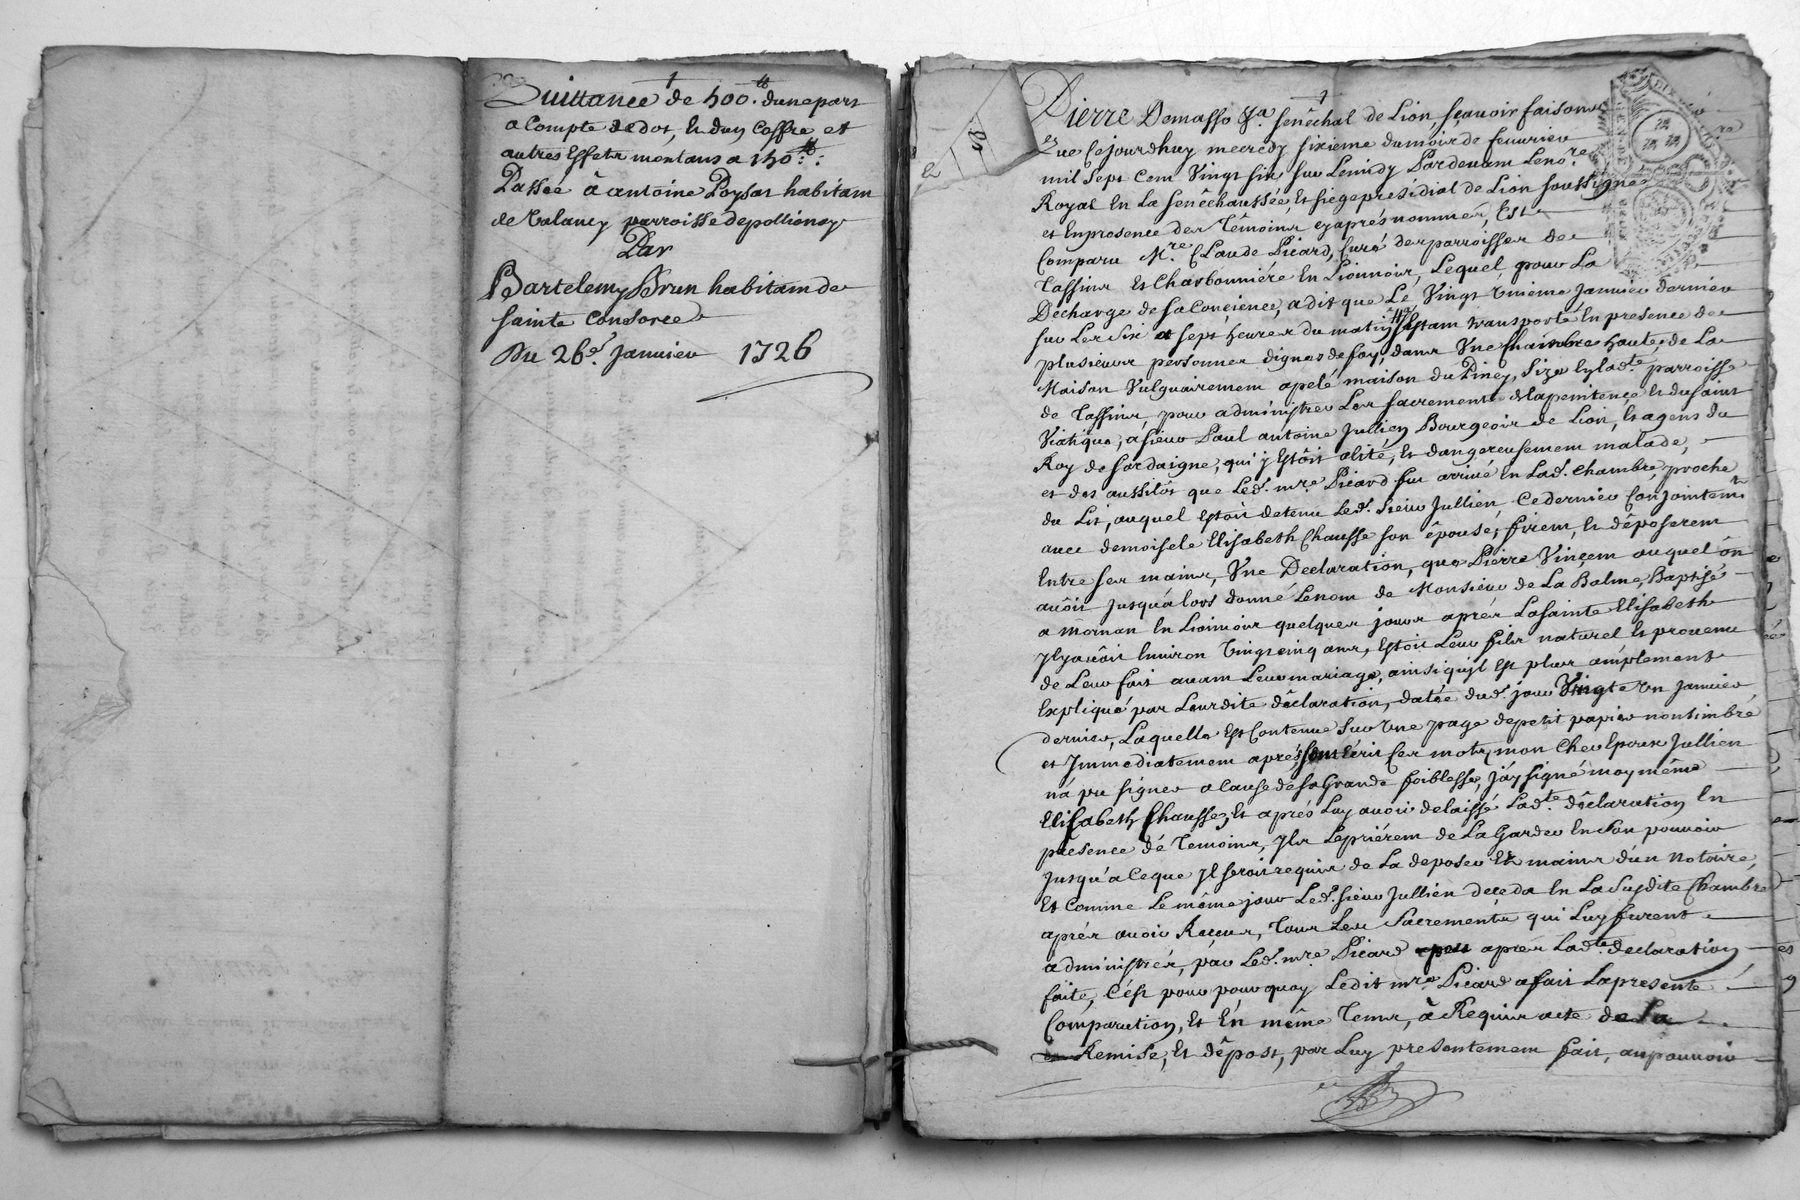 Quittance de 500.tt dunepart
a Compte de dot, et dun Coffre, et
autres Effets montans a 150.tt
Passée à antoine Poysat habitam
de Valancy parroisse depollionay
Par
Bartelemy Brun habitam de
sainte Consorce
Du 26.e Januier 1726
Pierre Demasso &.a senêchal de Lion sçauoir faisons
Que Cejourdhuy mecredy sixieme dumois de feurier
mil Sept Cem Vingt six sur Lemidy Pardeuam Leno.re
Royal En La senêchaussée, Et siege presidial de Lion soussigné
et Enpresence des Têmoins cyaprés nommés, Est
Comparu M.re Claude Picard, Curé des parroisses de
Tassins Et Charbonniére En Lionnois, Lequel pour La
Decharge de saConcience, adit que Le Vingt Unieme Januier dernier
sur Les six a sept heures du matin Estam transporté En presence de
plusieurs personnes dignes defoy, dans Une Chambre haute, de La
Maison Vulguairemem apelé maison du Piney, Size Enlad.te parroisse
de Tassins, pour administrer Les sacrements delapenitence Et dusaint
Viatique, a sieur Paul antoine Jullien Bourgeois de Lion, Et agens du
Roy de sardaigne, qui y Estôit alité, Et dangereusemem malade,
et des aussitôt que Led. m.re Picard fut arriué En Lad. Chambre, proche
du Lit, auquel Estoit detenu Led. sieur Jullien, Cedernier Conjointem.t
auec demoiselle Elisabeth Chausse son êpouse, firem, Et dêposerem
Entre ses mains, Une Declaration, que Pierre Vinçem auquel ôn
auôit Jusqu'alors donné Lenom de Monsieur de La Balme, Baptisé
a Mornan En Lionnois quelques jours aprés Lasainte Elisabeth
Jlyauôit Enuiron Vingtcinq ans, Estoit Leur fils naturel Et prouenu
de Leur fait auam Leurmariage, ainsi quil Est plus amplement
Expliqué par Leurdite dêclaration, datée dud. jour Vingt et Un Januier
dernier, Laquelle Est Contenue sur Une page depetit papier nontimbré
et Jmmediatement aprés sont Ecrit Ces mots, mon Cher Epoux Jullien
ná pu signer a Cause dé sa Grande foiblesse, j'ay signé moy même
Elisabeth Chausse, Et aprés Luy auoir delaissé Lad.te dêclaration En
presence dé Temoins, Jls Lepriérem de La Garder En son pouuoir
Jusqu'a Ceque Jl seroit requis de La deposer Es mains d'un Notaire,
Et Comme Le même jour Led. sieur Jullien deceda En La Susdite Chambre
aprés auoir Receus, Tous Les Sacrements qui Luy furent
administrés, par Led. m.re Picard aprés Lad.te dêclaration
faite, C'est pour pourquoy Ledit m.re Picard a fait Lapresente
Comparution, Et En même Tems, à Requis acte de La
Remise, Et dêpost, par Luy presentemem fait, aupouuoir